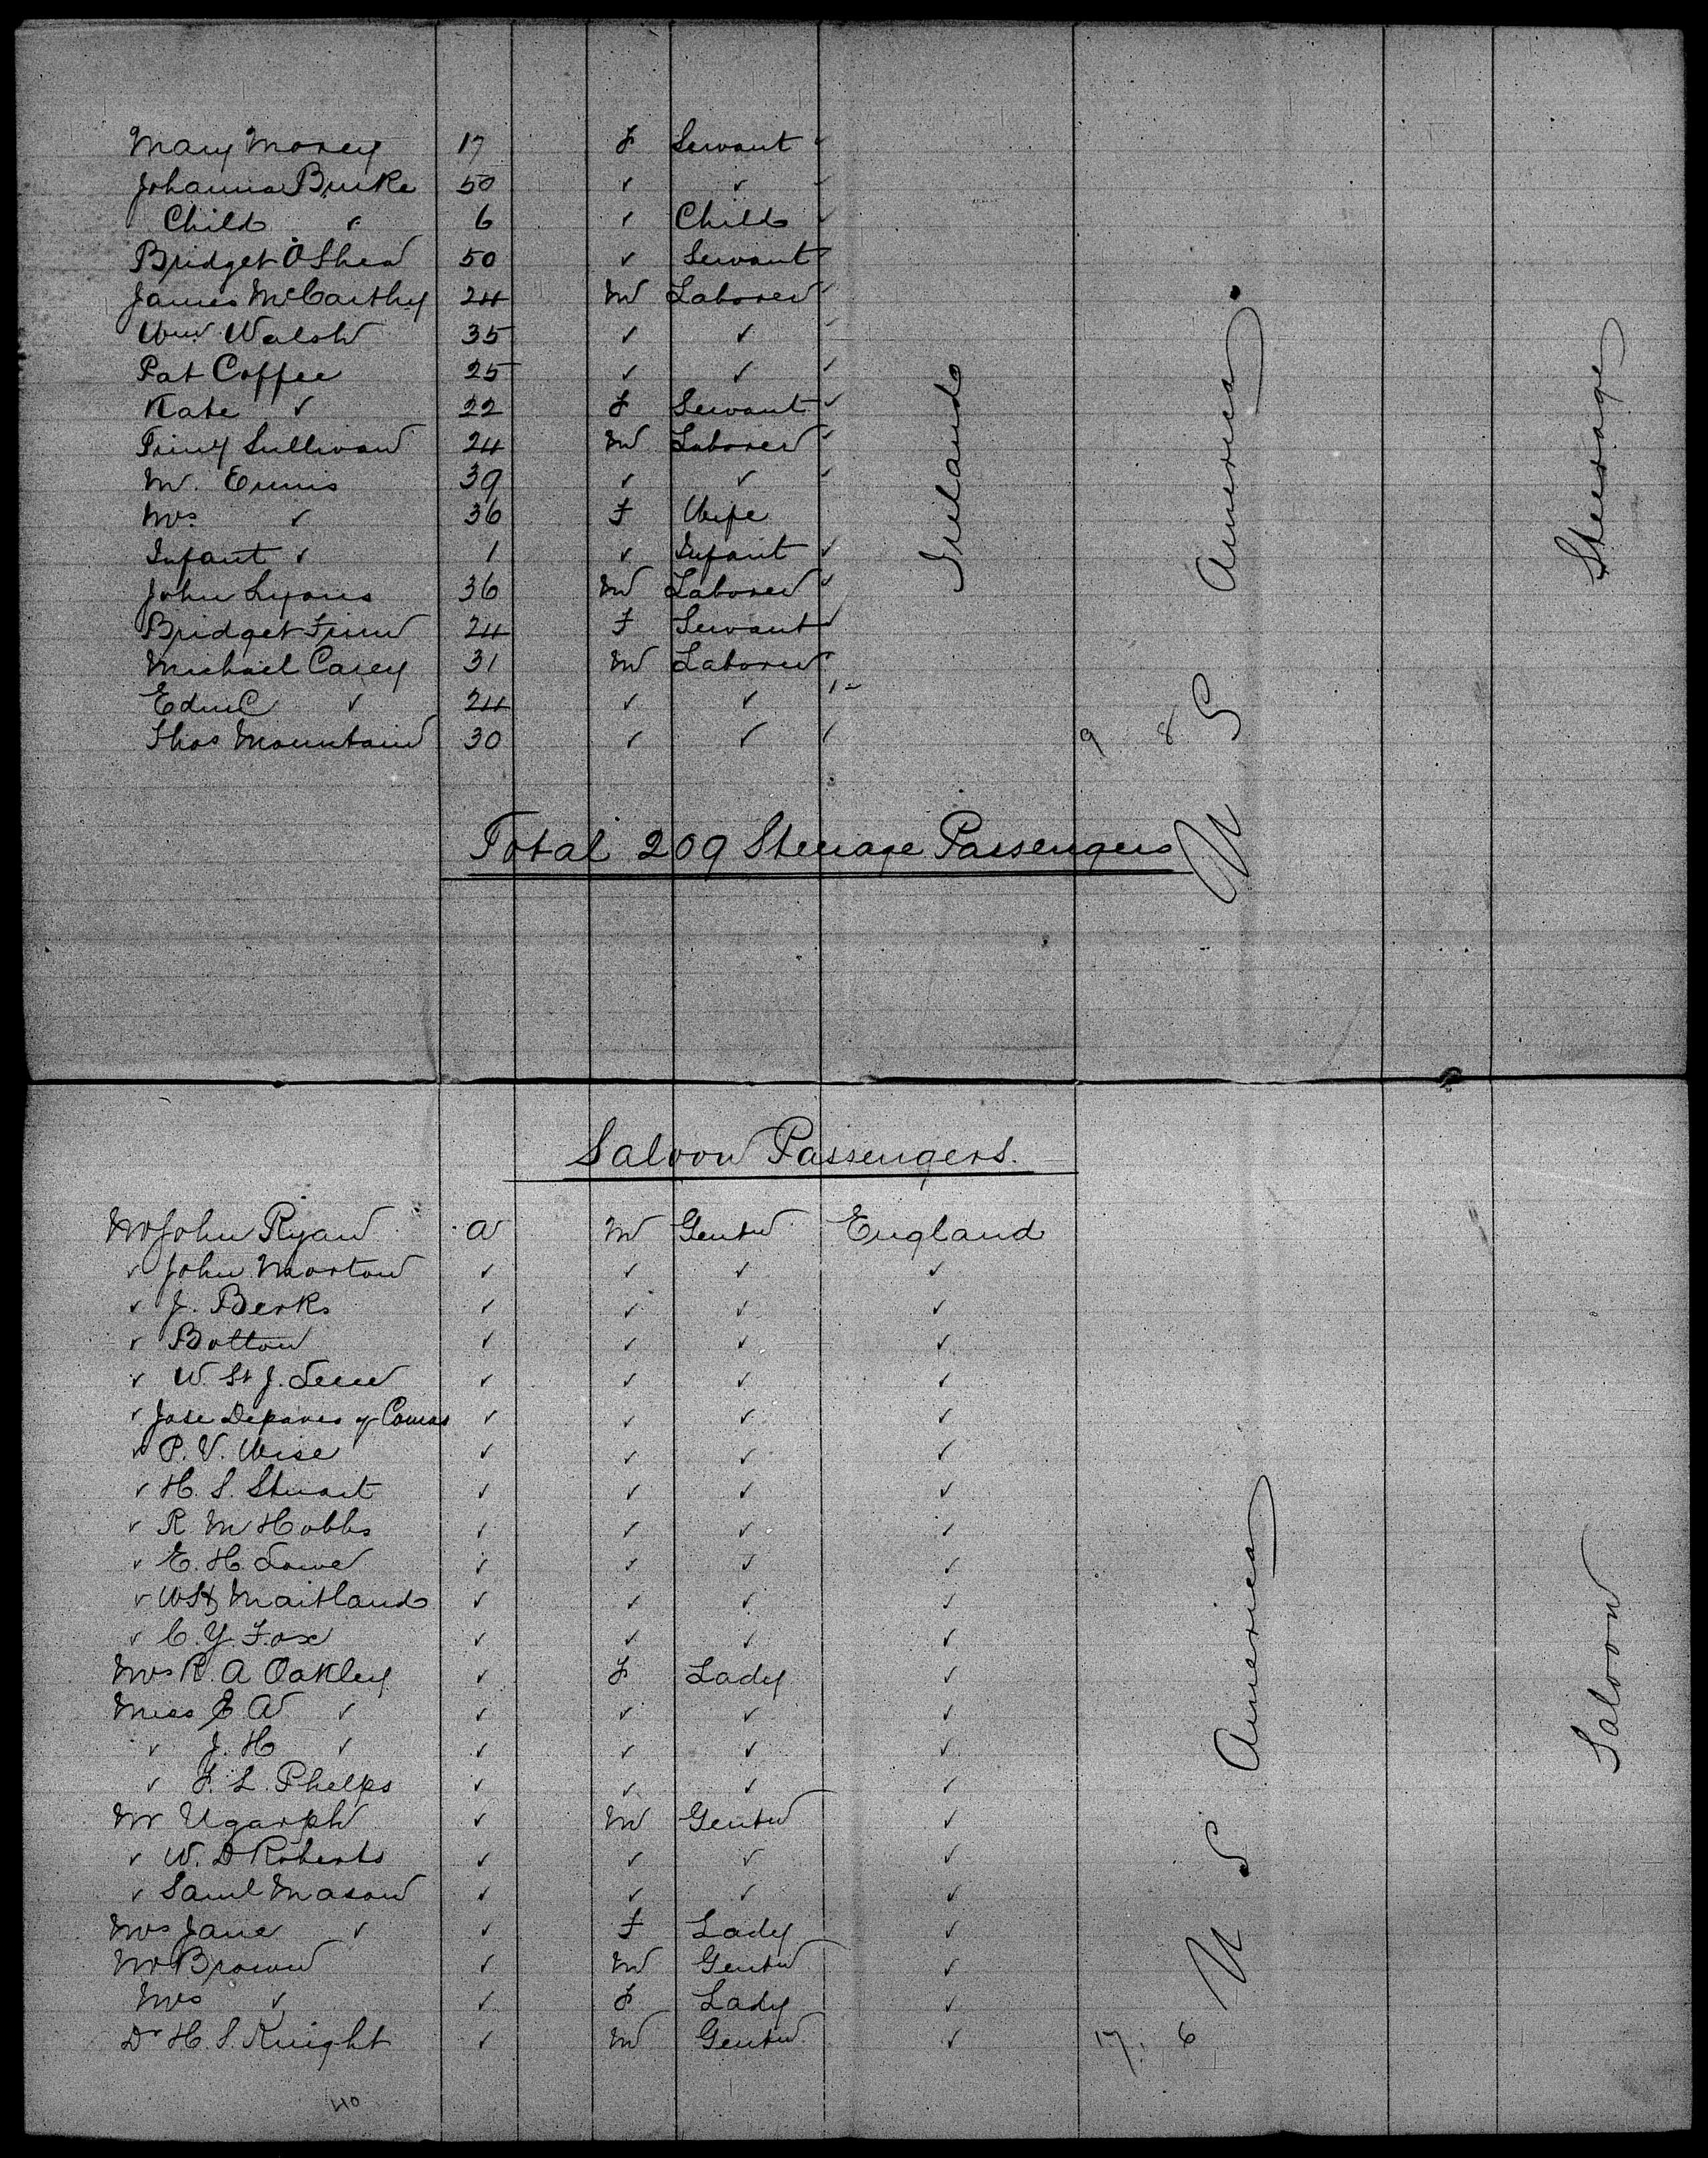 Mary Morey 17 F Servant ✓
Johanna Burke 50 ✓ ✓ ✓
Child ✓ 6 ✓ Child ✓
Bridget O'Shea 50 ✓ Servant ✓
James McCarthy 24 M Laborer ✓
Wm Walsh 35 ✓ ✓ ✓
Pat Coffee 25 ✓ ✓ ✓
Kate ✓ 22 F Servant ✓
Sullivan 24 M Laborer ✓
M. Ennis 39 ✓ ✓ ✓
Mrs ✓ 36 F Wife
Infant ✓ 1 ✓ Infant ✓
John Lyons 36 M Laborer ✓
Bridget Finn 24 F Servant ✓
Michael Casey 31 M Laborer ✓
✓ 24 ✓ ✓
Thos Mountain 30 ✓ ✓ ✓ 9 8
Ireland
U S America
Steerage
Total 209 Steerage Passengers
Saloon Passengers.
Mr John Ryan a M Gentn England
✓ John Morton ✓ ✓ ✓ ✓
✓ J. Berks ✓ ✓ ✓ ✓
✓ Bolton ✓ ✓ ✓ ✓
✓ W. St J. ✓ ✓ ✓ ✓
✓ Jose y Comas ✓ ✓ ✓ ✓
✓ P. V. Wise ✓ ✓ ✓ ✓
✓ H. S. Stuart ✓ ✓ ✓ ✓
✓ R M Hobbs ✓ ✓ ✓ ✓
✓ E. H. Lowe ✓ ✓ ✓ ✓
✓ Maitland ✓ ✓ ✓ ✓
✓ C. Y. Fox ✓ ✓ ✓ ✓
Mrs R. A Oakley ✓ F Lady ✓
Miss E A ✓ ✓ ✓ ✓ ✓
✓ J. H ✓ ✓ ✓ ✓ ✓
✓ F. L. Phelps ✓ ✓ ✓ ✓
Mr Ugarph ✓ M Gentn ✓
✓ W. D Roberts ✓ ✓ ✓ ✓
✓ Saml Mason ✓ ✓ ✓ ✓
Mrs Jane ✓ ✓ F Lady ✓
Mr Brown ✓ M Gentn ✓
Mrs ✓ ✓ F Lady ✓
Dr H. S. Knight ✓ M Gentn ✓ 17. 6
U S America
Saloon
40